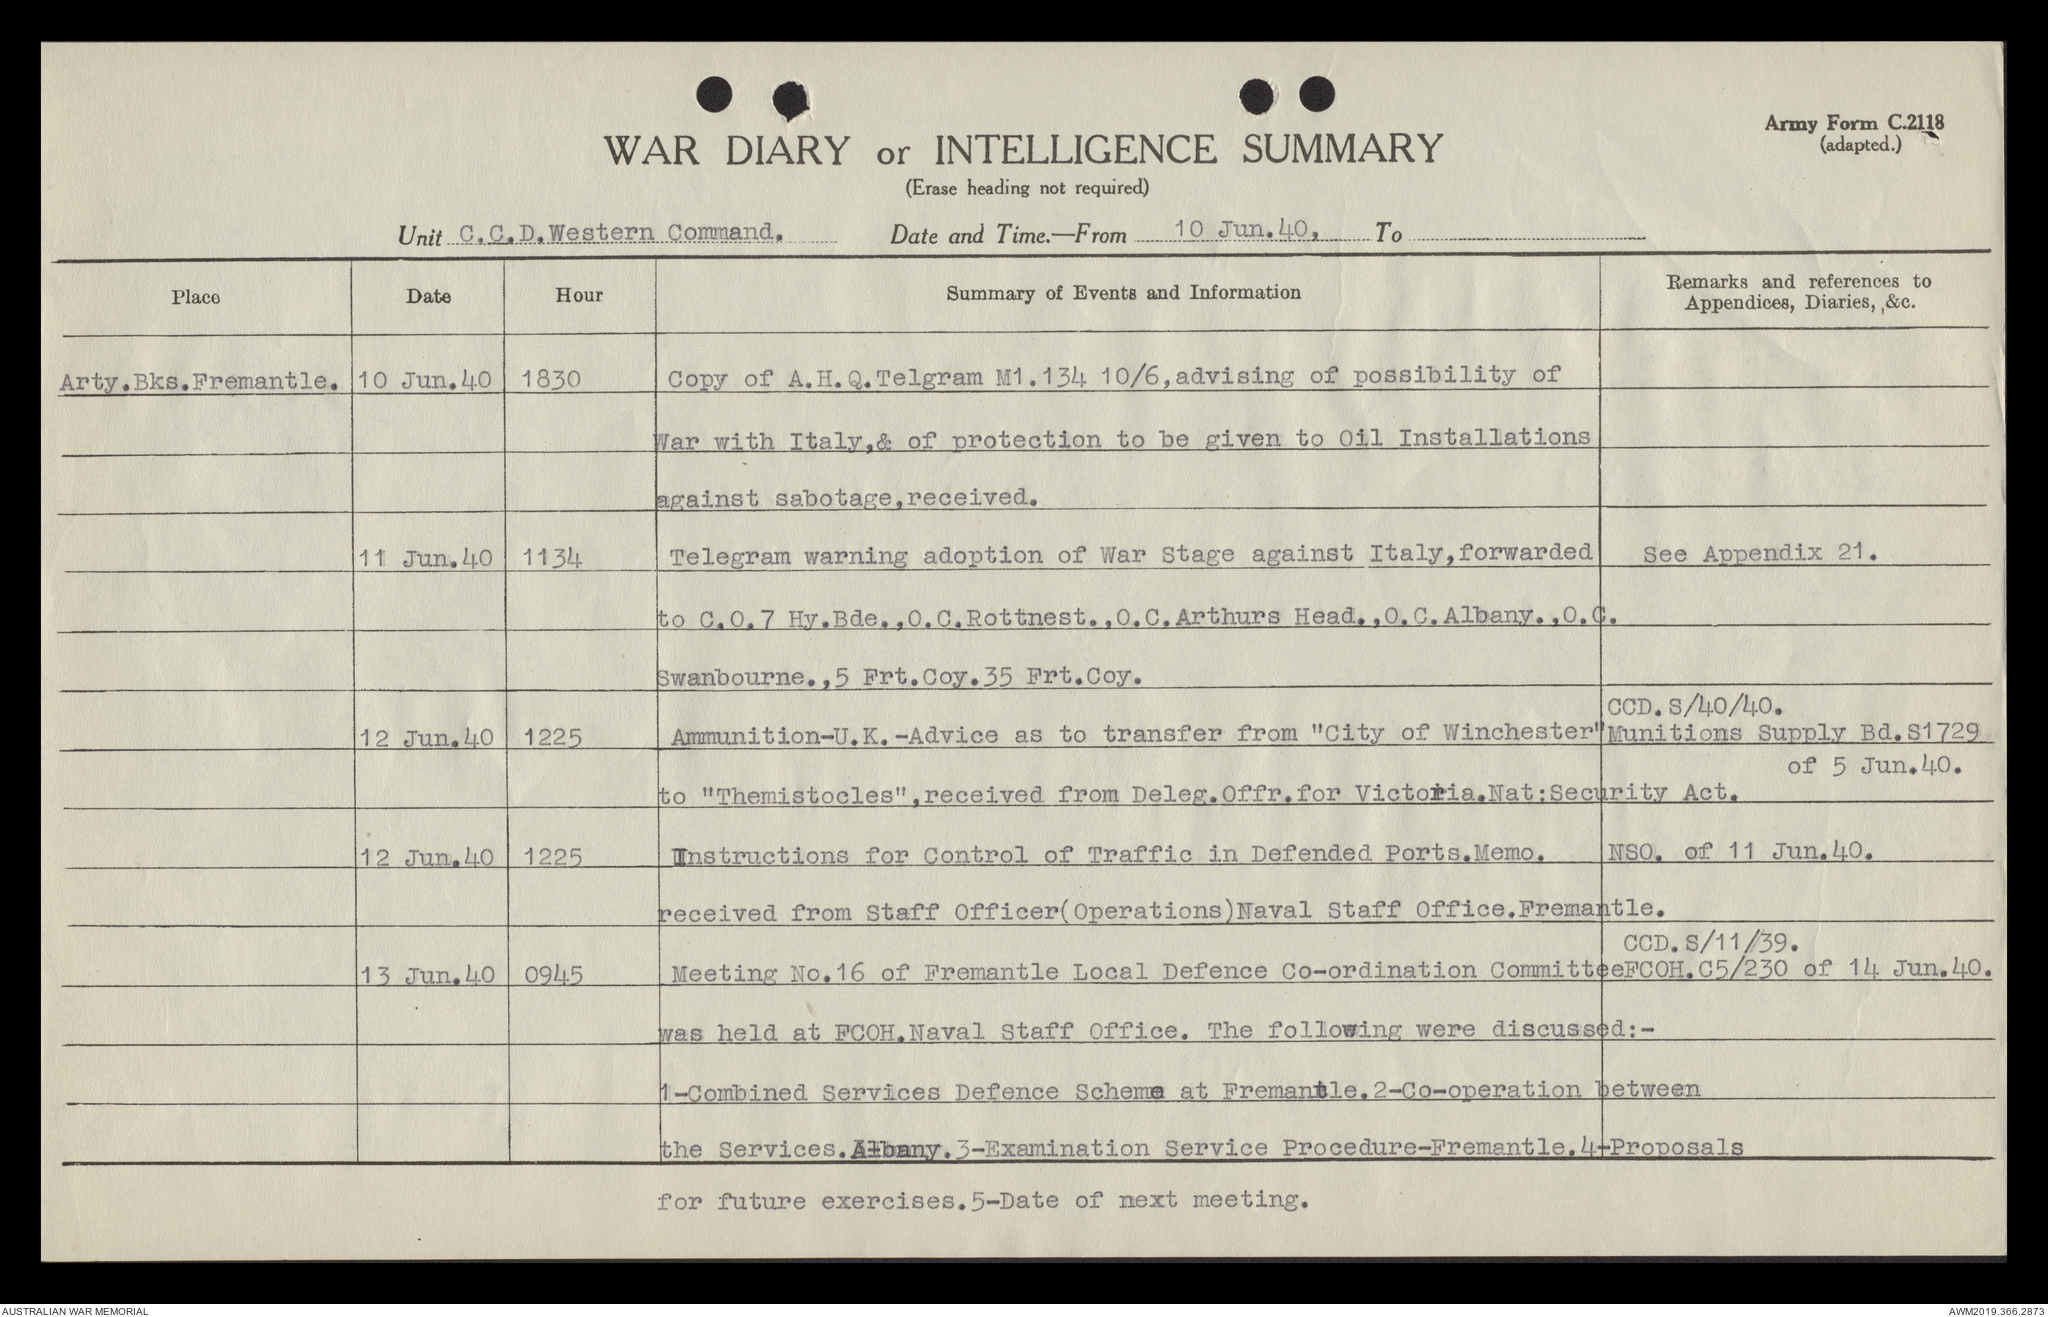 WAR DIARY or INTELLIGENCE SUMMARY
(Erase heading not required)
Army Form C.2118
(adapted.)
Unit C.C.D.Western Command. Date and Time.—From 10 Jun.40, To
Place Date Hour Summary of Events and Information Remarks and references to
Appendices, Diaries, &c.
Arty.Bks.Fremantle. 10 Jun.40 1830 Copy of A.H.Q.Telgram M1.134 10/6,advising of possibility of
War with Italy,& of protection to be given to Oil Installations
against sabotage,received.
11 Jun.40 1134 Telegram warning adoption of War Stage against Italy,forwarded See Appendix 21.
to C.O.7 Hy.Bde.,O.C.Rottnest.,O.C.Arthurs Head.,O.C.Albany.,O.C.
Swanbourne.,5 Frt.Coy.35 Frt.Coy.
CCD.S/40/40.
12 Jun.40 1225 Ammunition-U.K.-Advice as to transfer from "City of Winchester" Munitions Supply Bd.S1729
of 5 Jun.40.
to "Themistocles",received from Deleg.Offr.for Victoria.Nat:Security Act.
12 Jun.40 1225 Instructions for Control of Traffic in Defended Ports.Memo. NSO. of 11 Jun.40.
received from Staff Officer(Operations)Naval Staff Office.Fremantle.
CCD.S/11/39.
13 Jun.40 0945 Meeting No.16 of Fremantle Local Defence Co-ordination Committee FCOH.C5/230 of 14 Jun.40.
was held at FCOH.Naval Staff Office. The following were discussed:-
1-Combined Services Defence Scheme at Fremantle.2-Co-operation between
the Services.Albany.3-Examination Service Procedure-Fremantle.4-Proposals
for future exercises.5-Date of next meeting.
AUSTRALIAN WAR MEMORIAL AWM2019.366.2873